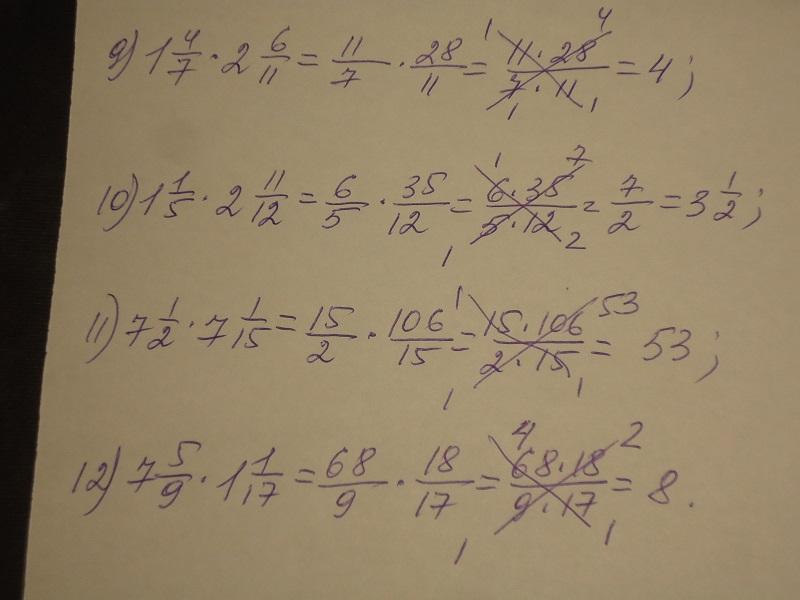 9) 1 4/7 · 2 6/11 = 11/7 · 28/11 = 11·28/7·11 = 4;
10) 1 1/5 · 2 11/12 = 6/5 · 35/12 = 6·35/5·12 = 7/2 = 3 1/2;
11) 7 1/2 · 7 1/15 = 15/2 · 106/15 = 15·106/2·15 = 53;
12) 7 5/9 · 1 1/17 = 68/9 · 18/17 = 68·18/9·17 = 8.